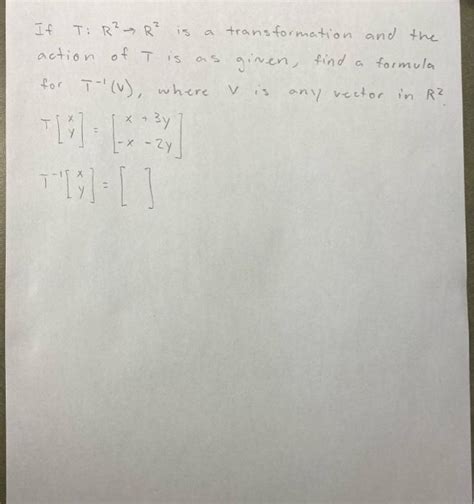 If T: R² → R² is a transformation and the
action of T is as given, find a formula
for T⁻¹(V), where V is any vector in R².
T[x y] = [x + 3y -x - 2y]
T⁻¹[x y] = [ ]